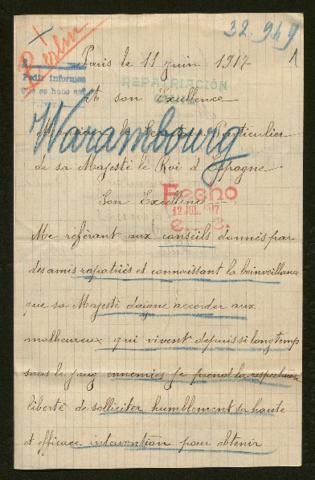 32.949
1
Berlin
Paris le 11 juin 1917
Pedir informes
REPATRIACIÓN
A son Excellence
Warambourg
Monsieur le Secrétaire Particulier
de sa Majesté le Roi d'Espagne
Son Excellence
Fecho
12 JUL. 17
Me référant aux conseils donnés par
des amis rapatriés et connaissant la bienveillance
que sa Majesté daigne accorder aux
malheureux qui vivent depuis si longtemp
sous le joug ennemies je prend la respectueuse
liberté de solliciter humblement sa haute
et efficace intervention pour obtenir